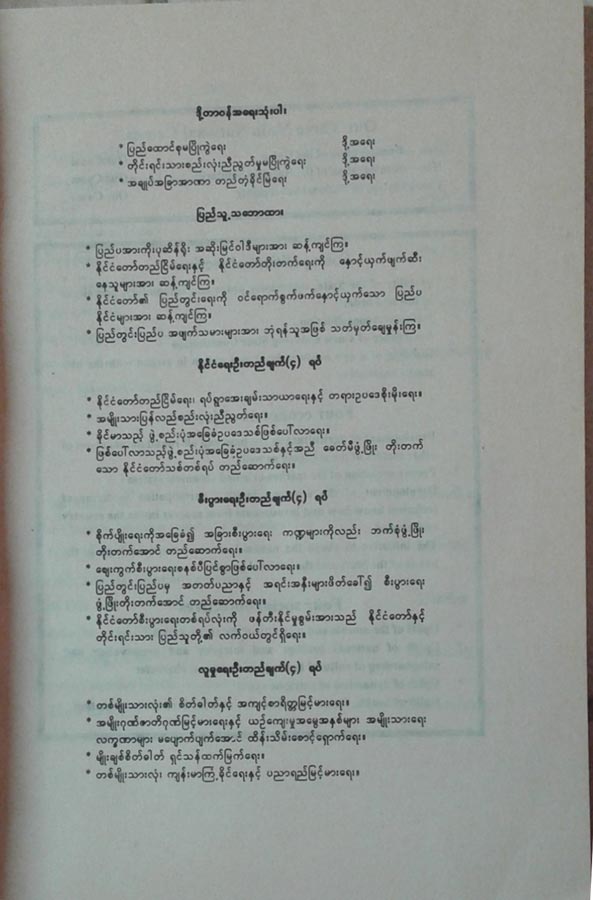 ဒို့တာဝန်အရေးသုံးပါး
* ပြည်ထောင်စုမပြိုကွဲရေး ဒို့အရေး
* တိုင်းရင်းသားစည်းလုံးညီညွတ်မှုမပြိုကွဲရေး ဒို့အရေး
* အချုပ်အခြာအာဏာ တည်တံ့ခိုင်မြဲရေး ဒို့အရေး
ပြည်သူ့သဘောထား
* ပြည်ပအားကိုးပုဆိန်ရိုး အဆိုးမြင်ဝါဒီများအား ဆန့်ကျင်ကြ။
* နိုင်ငံတော်တည်ငြိမ်ရေးနှင့် နိုင်ငံတော်တိုးတက်ရေးကို နှောင့်ယှက်ဖျက်ဆီး
နေသူများအား ဆန့်ကျင်ကြ။
* နိုင်ငံတော်၏ ပြည်တွင်းရေးကို ဝင်ရောက်စွက်ဖက်နှောင့်ယှက်သော ပြည်ပ
နိုင်ငံများအား ဆန့်ကျင်ကြ။
* ပြည်တွင်းပြည်ပ အဖျက်သမားများအား ဘုံရန်သူအဖြစ် သတ်မှတ်ချေမှုန်းကြ။
နိုင်ငံရေးဦးတည်ချက်(၄) ရပ်
* နိုင်ငံတော်တည်ငြိမ်ရေး၊ ရပ်ရွာအေးချမ်းသာယာရေးနှင့် တရားဥပဒေစိုးမိုးရေး။
* အမျိုးသားပြန်လည်စည်းလုံးညီညွတ်ရေး။
* ခိုင်မာသည့် ဖွဲ့စည်းပုံအခြေခံဥပဒေသစ်ဖြစ်ပေါ်လာရေး။
* ဖြစ်ပေါ်လာသည့်ဖွဲ့စည်းပုံအခြေခံဥပဒေသစ်နှင့်အညီ ခေတ်မီဖွံ့ဖြိုး တိုးတက်
သော နိုင်ငံတော်သစ်တစ်ရပ် တည်ဆောက်ရေး။
စီးပွားရေးဦးတည်ချက်(၄) ရပ်
* စိုက်ပျိုးရေးကိုအခြေခံ၍ အခြားစီးပွားရေး ကဏ္ဍများကိုလည်း ဘက်စုံဖွံ့ဖြိုး
တိုးတက်အောင် တည်ဆောက်ရေး။
* ဈေးကွက်စီးပွားရေးစနစ်ပီပြင်စွာဖြစ်ပေါ်လာရေး။
* ပြည်တွင်းပြည်ပမှ အတတ်ပညာနှင့် အရင်းအနှီးများဖိတ်ခေါ်၍ စီးပွားရေး
ဖွံ့ဖြိုးတိုးတက်အောင် တည်ဆောက်ရေး။
* နိုင်ငံတော်စီးပွားရေးတစ်ရပ်လုံးကို ဖန်တီးနိုင်မှုစွမ်းအားသည် နိုင်ငံတော်နှင့်
တိုင်းရင်းသား ပြည်သူတို့၏ လက်ဝယ်တွင်ရှိရေး။
လူမှုရေးဦးတည်ချက်(၄) ရပ်
* တစ်မျိုးသားလုံး၏ စိတ်ဓါတ်နှင့် အကျင့်စာရိတ္တမြင့်မားရေး။
* အမျိုးဂုဏ်ဇာတိဂုဏ်မြင့်မားရေးနှင့် ယဉ်ကျေးမှုအမွေအနှစ်များ အမျိုးသားရေး
လက္ခဏာများ မပျောက်ပျက်အောင် ထိန်းသိမ်းစောင့်ရှောက်ရေး။
* မျိုးချစ်စိတ်ဓါတ် ရှင်သန်ထက်မြက်ရေး။
* တစ်မျိုးသားလုံး ကျန်းမာကြံ့ခိုင်ရေးနှင့် ပညာရည်မြင့်မားရေး။